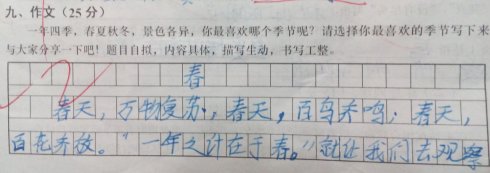 九、作文（25分）
一年四季，春夏秋冬，景色各异，你最喜欢哪个季节呢？请选择你最喜欢的季节写下来
与大家分享一下吧！题目自拟，内容具体，描写生动，书写工整。
春
春天，万物复苏，春天，百鸟齐鸣；春天，
百花齐放。“一年之计在于春。”就让我们去观察